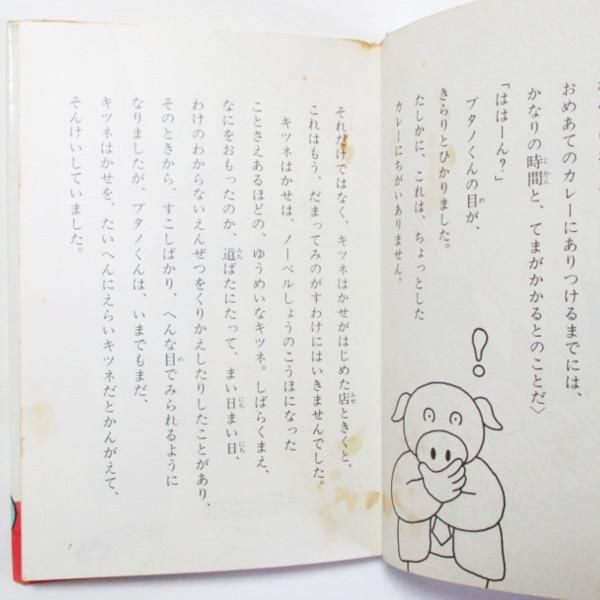 おめあてのカレーにありつけるまでには、
かなりの時間と、てまがかかるとのことだ〉
「ははーん?」
ブタノくんの目が、
きらりとひかりました。
たしかに、これは、ちょっとした
カレーにちがいありません。
!
それだけではなく、キツネはかせがはじめた店ときくと、
これはもう、だまってみのがすわけにはいきませんでした。
キツネはかせは、ノーベルしょうのこうほになった
ことさえあるほどの、ゆうめいなキツネ。しばらくまえ、
なにをおもったのか、道ばたにたって、まい日まい日、
わけのわからないえんぜつをくりかえしたりしたことがあり、
そのときから、すこしばかり、へんな目でみられるように
なりましたが、ブタノくんは、いまでもまだ、
キツネはかせを、たいへんにえらいキツネだとかんがえて、
そんけいしていました。
7